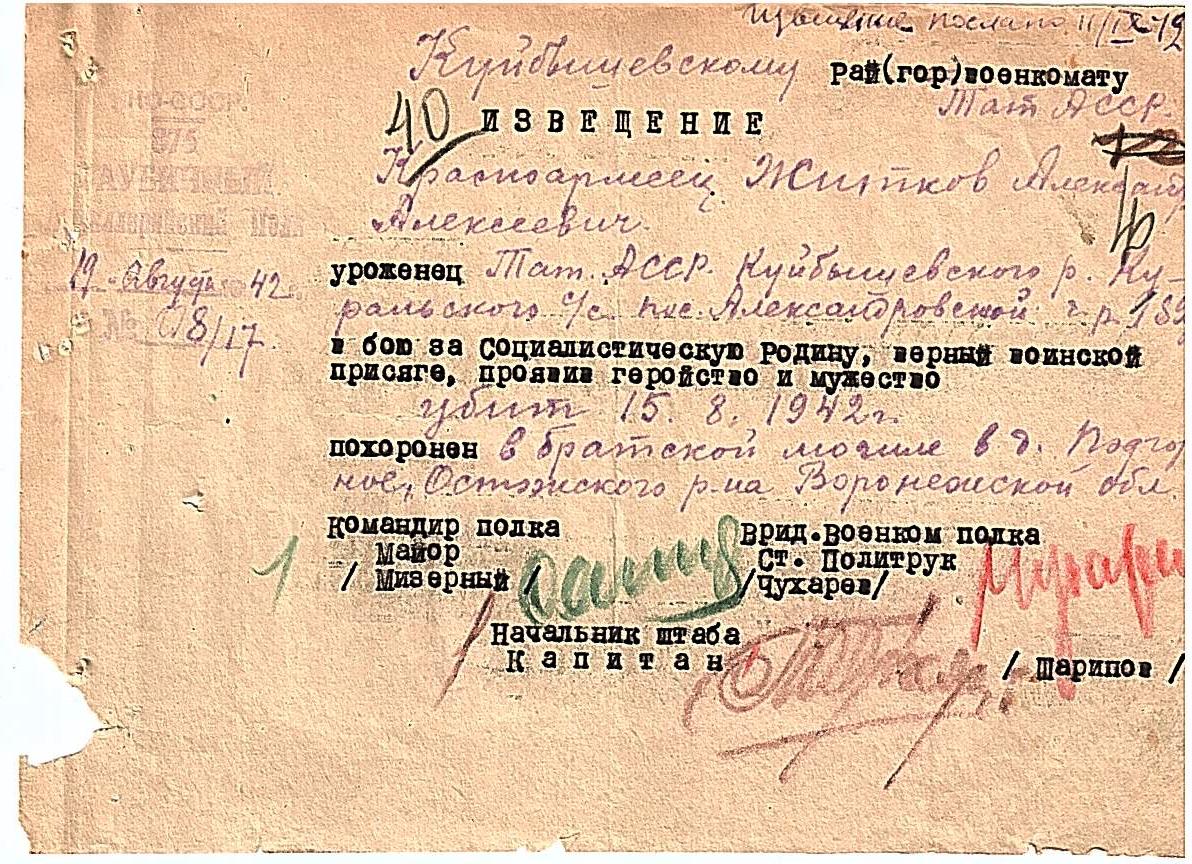 Извещение послано 11/IX-42
Куйбышевскому Рай(гор)военкомату
Тат АССР.
40 ИЗВЕЩЕНИЕ
Красноармеец Житков Александр
Алексеевич.
НКО-СССР.
875
19 Августа 42
уроженец Тат. АССР. Куйбышевского р. Ку-
ральского с/с. пос. Александровской г.р.
№ 018/17.
в бою за Социалистическую Родину, верный воинской
присяге, проявив геройство и мужество
убит 15. 8. 1942 г.
похоронен в братской могиле в д. Подгор
ное, Р-на Воронежской обл.
Командир полка Врид.Военком полка
Майор Ст. Политрук
/ Мизерный / /Чухарев/
Начальник штаба
Капитан / Шарипов /